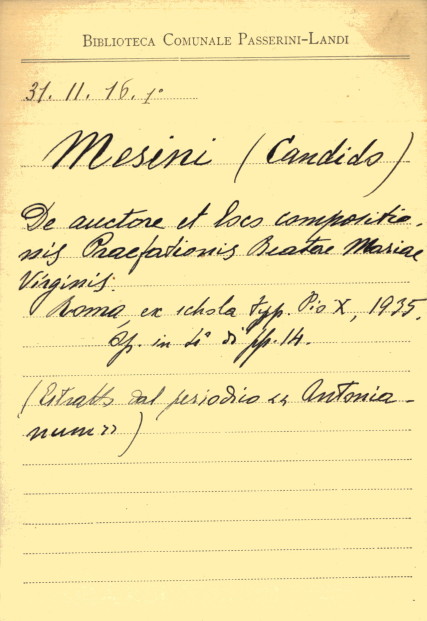 BIBLIOTECA COMUNALE PASSERINI-LANDI
31. II. 16. 1º
Mesini (Candido)
De auctore et loco compositio-
nis Praefationis Beatae Mariae
Virginis.
Roma, ex schola typ. Pio X, 1935.
Op. in 4º di pp. 14.
(Estratto dal periodico << Antonia-
num >> )